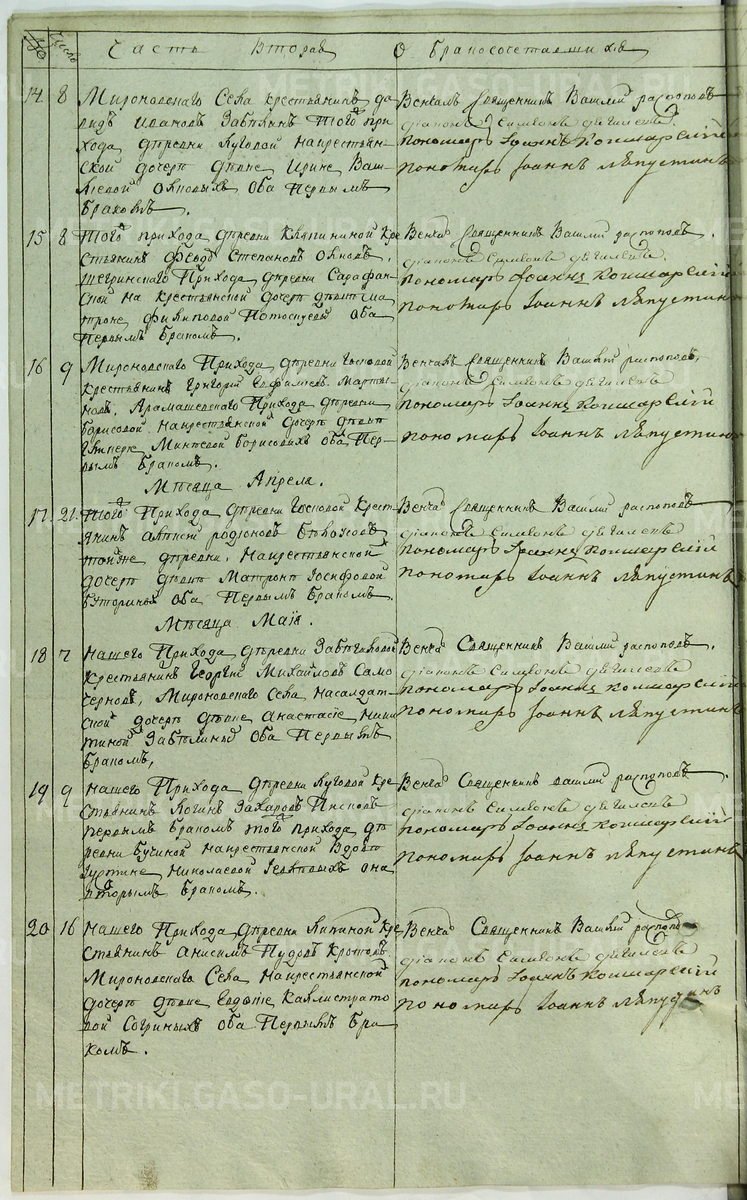 Число
Часть вторая о бракосочетавшихся
14 8 Мироновскаго Села крестьянинъ да-
видъ Ивановъ Забѣлинъ того при-
хода деревни Луговой накрестьян-
ской дочерѣ дѣвке Ирине Васи-
льевой обабылыхъ оба первымъ
бракомъ.
Венчалъ Священникъ Василий распоповъ
діаконъ Симвонъ
пономарь Іоаннъ Кошарский
пономарь Іоаннъ Ляпустинъ
15 8 того прихода деревни Кляпининой кре
стьянинъ Федоръ Степановъ
шегринскаго прихода деревни Сарафан-
ской на крестьянской дочерѣ девке ма
троне Филиповой оба
первымъ бракомъ.
Венчалъ Священникъ Василий распоповъ.
діаконъ Симвонъ
пономарь Іоаннъ Кошарский
пономарь Іоаннъ Ляпустинъ
16 9 Мироновскаго Прихода деревни Госьковой
крестьянинъ Григорий Евфимьевъ Марты-
новъ, Арамашевскаго Прихода деревни
борисовой накрестьянской дочерѣ девке
Минѣевой борисовыхъ оба пер-
вымъ бракомъ.
Венчалъ Священникъ Василий распоповъ,
діаконъ Симвонъ
пономарь Іоаннъ Кошарский
пономарь Іоаннъ Ляпустинъ
Мѣсяца Апреля.
17 21. того Прихода деревни Госьковой крест
янинъ родионовъ
тояже деревни, накрестьянской
дочерѣ девке Матроне Іосифовой
буториныхъ оба Первымъ бракомъ
Венчалъ Священникъ Василий распоповъ
діаконъ Симвонъ
пономарь Іоаннъ Кошарский
пономарь Іоаннъ Ляпустинъ
Мѣсяца Маія.
18 7 нашего Прихода деревни Забѣгаловой
крестьянинъ Георгий Михайловъ Само
черновъ, Мироновскаго Села насалдат-
ской дочерѣ девке Анастасие Ники
тиной Забѣлиныхъ оба Первымъ
бракомъ,
Венчалъ Священникъ Василий распоповъ.
діаконъ Симвонъ
пономарь Іоаннъ Кошарский
пономарь Іоаннъ Ляпустинъ
19 9 нашего Прихода деревни Луговой кре
стьянинъ Логинъ Захаровъ
первымъ бракомъ того прихода де
ревни Бучиной накрестьянской вдове
Николаевой она
вторымъ бракомъ.
Венчалъ Священникъ василий распоповъ.
діаконъ Симвонъ
пономарь Іоаннъ Кошарский
пономарь Іоаннъ Ляпустинъ
20 16 нашего Прихода деревни Липиной кре
стьянинъ Анисимъ Пудовъ Кротовъ
Мироновскаго Села накрестьянской
дочерѣ девке Евдокие Каллистрато
вой Согриныхъ оба Первымъ бра
комъ.
Венчалъ Священникъ Василий распоповъ
діаконъ Симвонъ
пономарь Іоаннъ Кошарский
пономарь Іоаннъ Ляпустинъ
METRIKI.GASO-URAL.RU